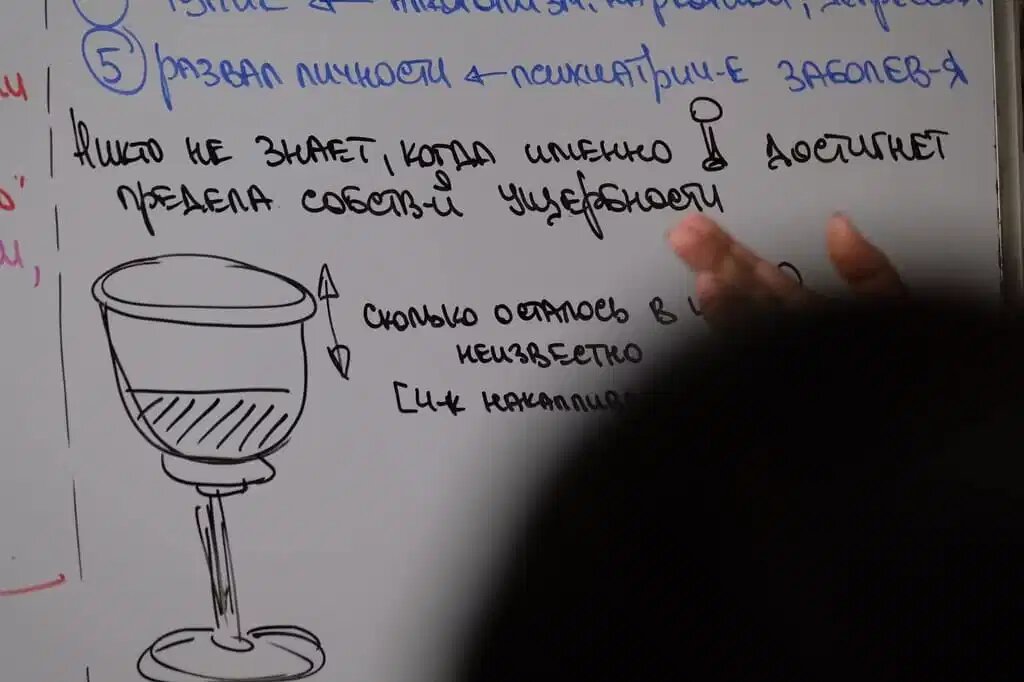 ④ тупик ← алкоголизм, наркотики,
⑤ развал личности ← психиатрич-е заболев-я
Никто не знает, когда именно достигнет
предела собств-й ущербности
сколько осталось в
неизвестно
[ч-к накаплив